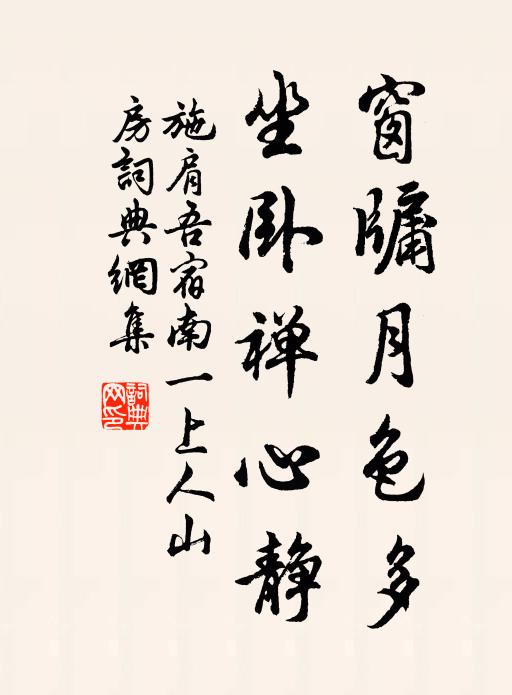 窗牖月色多
坐卧禅心静
施肩吾宿南一上人山
房詞典網集
詞典网印